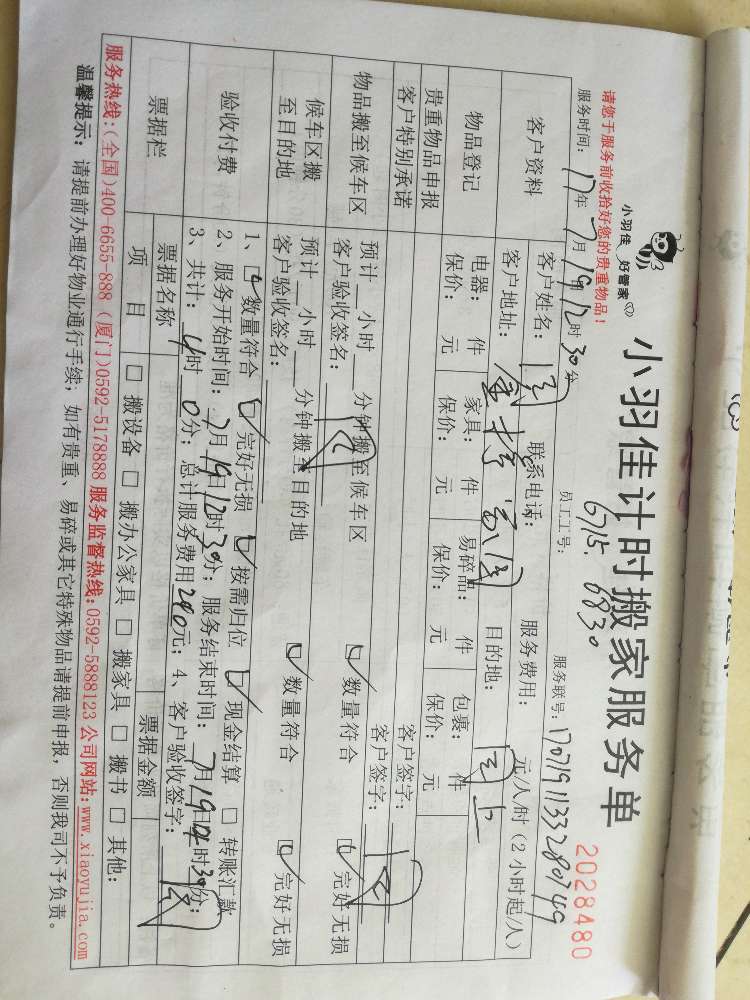 小羽佳 好管家
小羽佳计时搬家服务单
2028480
请您于服务前收拾好您的贵重物品！
员工工号：6715. 6830
服务时间：17年7月19日12时30分
服务联号：
客户资料
客户姓名：
联系电话：
服务费用： 元/人/时（2小时起/人）
客户地址：
目的地：同上
物品登记
电器： 件 家具： 件 易碎品： 件 包裹： 件
保价： 元 保价： 元 保价： 元 保价： 元
贵重物品申报
客户特别承诺
客户签字：
客户签字：
物品搬至候车区
预计__小时__分钟搬至候车区
客户验收签名： 数量符合 完好无损
候车区搬
至目的地
预计__小时__分钟搬至目的地
客户验收签名： 数量符合 完好无损
验收付费
1、数量符合 完好无损 按需归位 现金结算 □ 转账汇款
2、服务开始时间：7月19日12时30分；服务结束时间：7月19日时30分；
3、共计：4时0分；总计服务费用240元；4、客户验收签字：
票据栏
票据名称 票据金额
项 目 □ 搬设备 □ 搬办公家具 □ 搬家具 □ 搬书 □ 其他：
服务热线：(全国)400-6655-888 (厦门)0592-5178888 服务监督热线：0592-5888123 公司网站：www.xiaoyujia.com
温馨提示：请提前办理好物业通行手续；如有贵重、易碎或其它特殊物品请提前申报，否则我司不予负责。